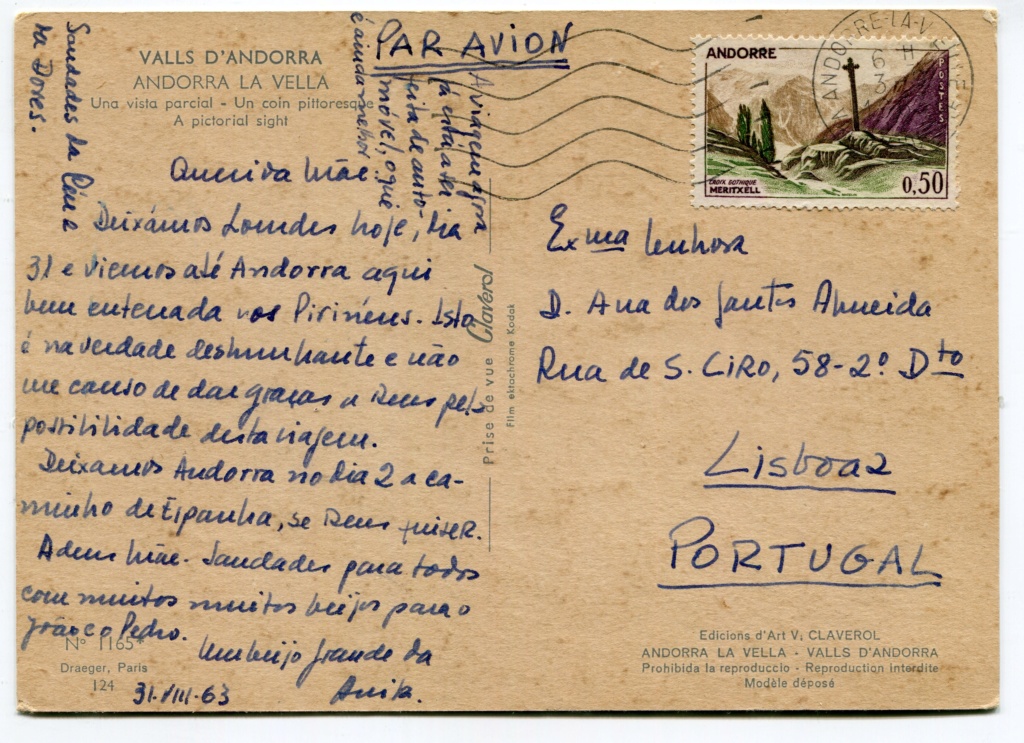 VALLS D'ANDORRA
ANDORRA LA VELLA
Una vista parcial - Un coin pittoresque
A pictorial sight
Querida Mãe
Deixámos Lourdes hoje, dia
31 e viemos até Andorra aqui
bem enterrada nos Pirinéus. Isto
é na verdade deslumbrante e não
me canso de dar graças a Deus pela
possibilidade desta viagem.
Deixamos Andorra no dia 2 a ca-
minho de Espanha, se Deus quiser.
Adeus Mãe. Saudades para todos
com muitos muitos beijos para o
João e o Pedro.
Um beijo grande da
Anita.
31-VIII-63
A viagem agora
já está a ser
feita de auto-
móvel, o que
é ainda melhor
Saudades da
na Dores.
Nº 1165*
Draeger, Paris
124
Prise de vue Claverol
Film ektachrome Kodak
PAR AVION
ANDORRE
POSTES
CROIX GOTHIQUE
MERITXELL
0,50
ANDORRE-LA-VIEILLE
Exma Senhora
D. Ana dos Santos Almeida
Rua de S. Ciro, 58-2º Dto
Lisboa 2
PORTUGAL
Edicions d'Art V. CLAVEROL
ANDORRA LA VELLA - VALLS D'ANDORRA
Prohibida la reproduccio - Reproduction interdite
Modèle déposé